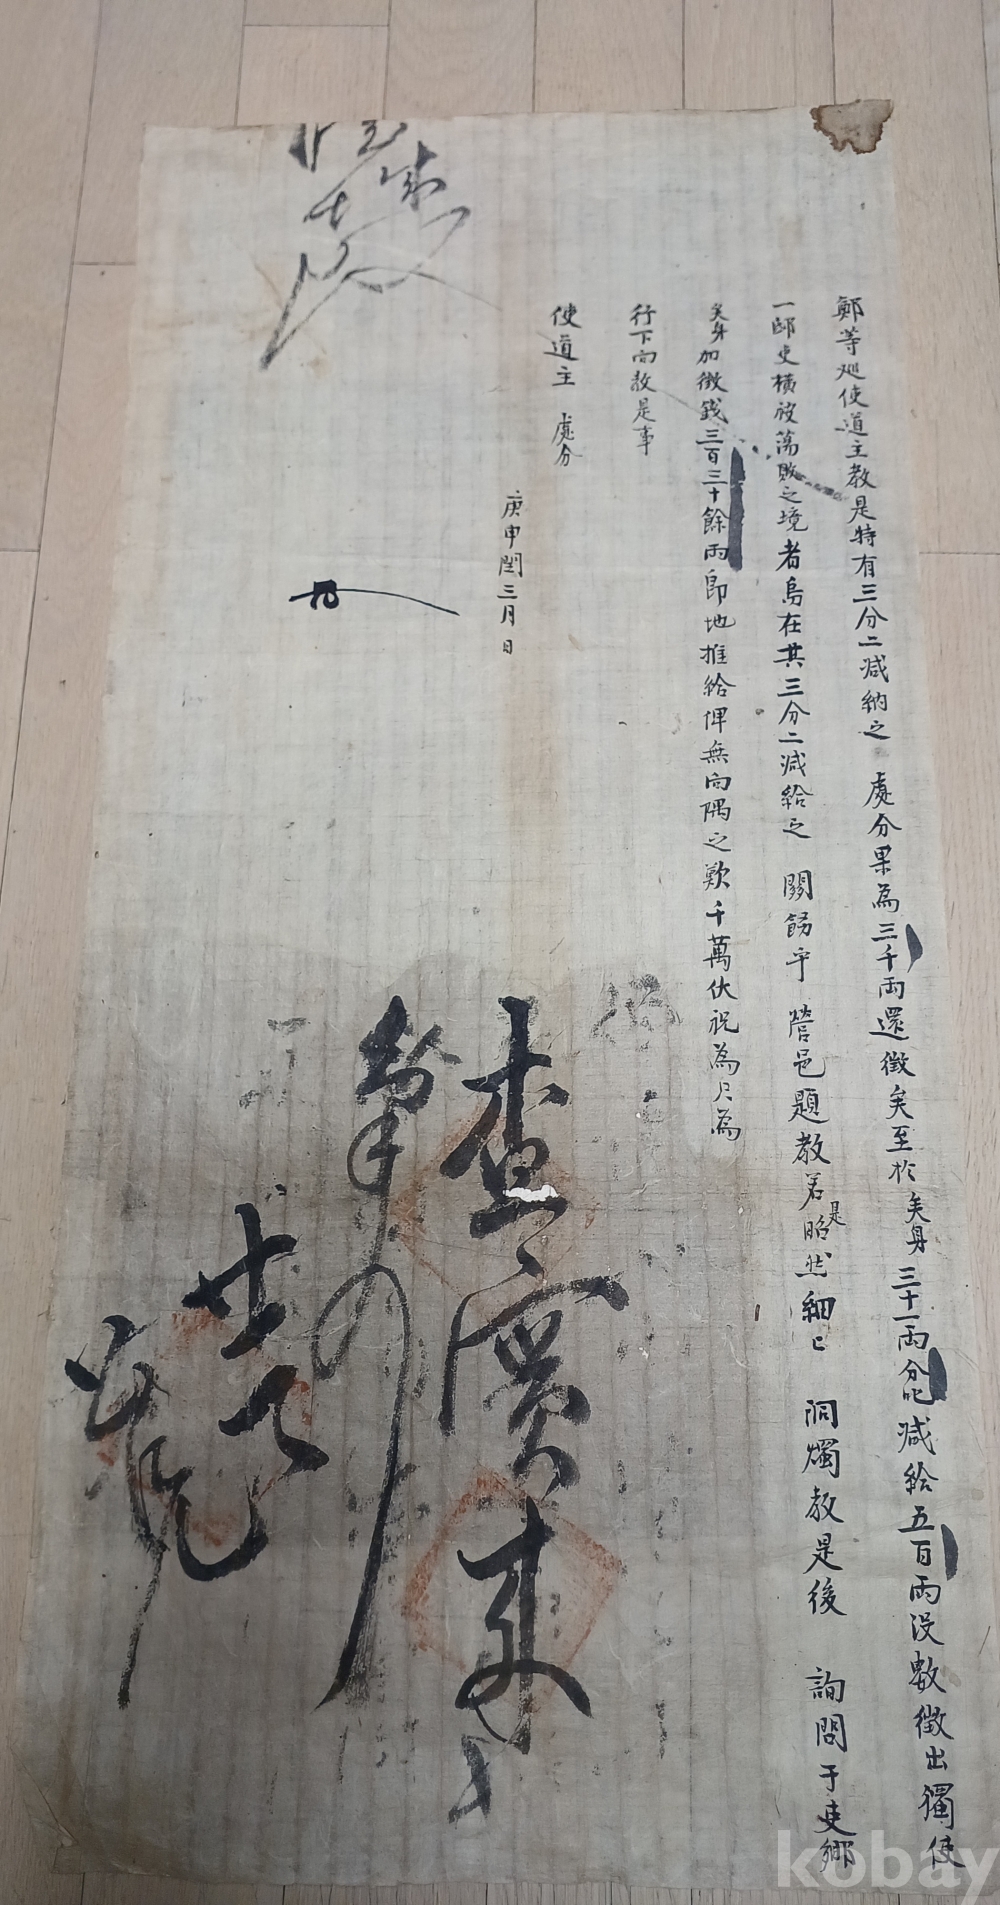 鄭等巡使道主教是特有三分二减納之 處分果為三千両還徵矣至於矣身三十一両分叱减給五百両没數徵出獨使
一邸吏橫被蕩敗之境者烏在其三分二减給之 關飭乎 營邑題教若是昭然細亡 洞燭教是後 詢問于吏鄉
矣身加徵錢三百三十餘両即地推給俾無向隅之歎千萬伏祝為只為
行下向教是事
使道主 處分
庚申閏三月 日
查實來
kobay